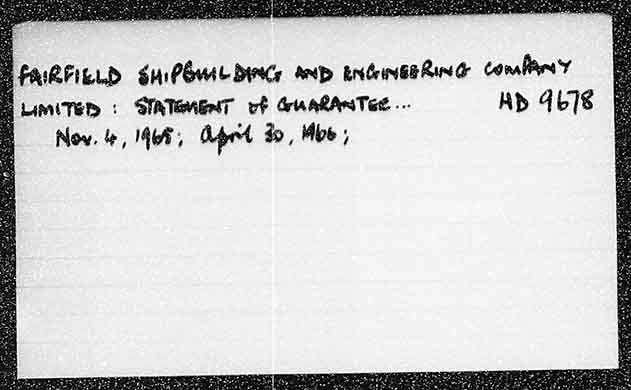 FAIRFIELD SHIPBUILDING AND ENGINEERING COMPANY
LIMITED : STATEMENT of GUARANTEE... HD 9678
Nov. 4, 1965; April 30, 1966;